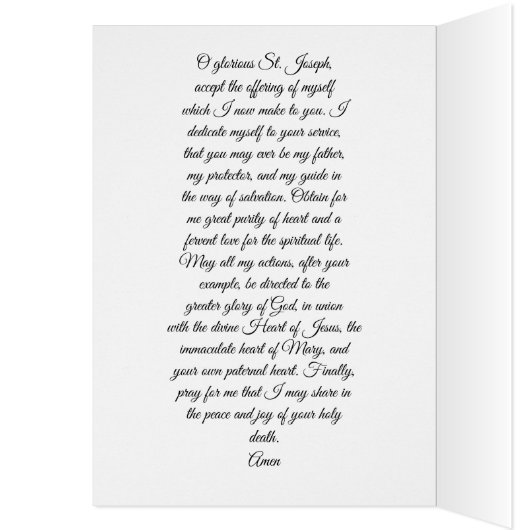 O glorious St. Joseph,
accept the offering of myself
which I now make to you. I
dedicate myself to your service,
that you may ever be my father,
my protector, and my guide in
the way of salvation. Obtain for
me great purity of heart and a
fervent love for the spiritual life.
May all my actions, after your
example, be directed to the
greater glory of God, in union
with the divine Heart of Jesus, the
immaculate heart of Mary, and
your own paternal heart. Finally,
pray for me that I may share in
the peace and joy of your holy
death.
Amen